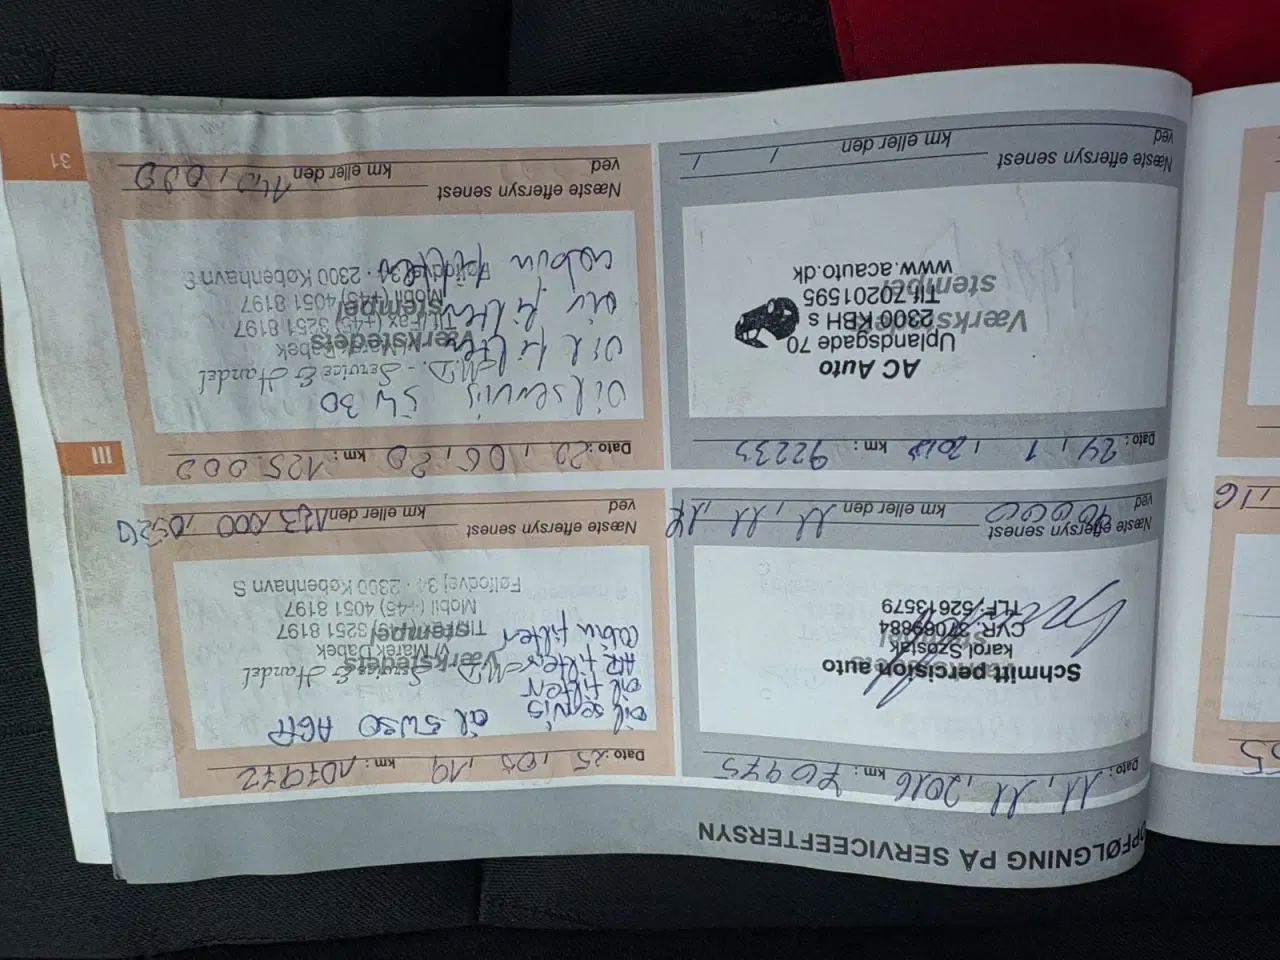 OPFØLGNING PÅ SERVICEEFTERSYN
Dato: 11, 11, 2016 km: 70975
Værkstedets
stempel
Schmitt percision auto
karol Szostak
CVR: 37069884
TLF: 52613579
Næste eftersyn senest
ved 90000 km eller den 11, 11, 17
Dato: 24, 1, 2018 km: 92233
Værkstedets
stempel
AC Auto
Uplandsgade 70
2300 KBH s
Tlf.70201595
www.acauto.dk
Næste eftersyn senest
ved km eller den / /
Dato: 25, 05, 19 km: 107972
oil servis
oil filter
AIR filter
Cabin filter
oil 5W30
Værkstedets
stempel
M.D. - Service & Handel
v/ Marek Dabek
Tlf./Fax (+45) 3251 8197
Mobil (+45) 4051 8197
Følfodvej 34 · 2300 København S
Næste eftersyn senest
ved km eller den 123.000, 0520
Dato: 20, 06, 20 km: 125.000
Oil servis 5W30
Oil filter
air filter
cabin filter
Værkstedets
stempel
M.D. - Service & Handel
v/ Marek Dabek
Tlf./Fax (+45) 3251 8197
Mobil (+45) 4051 8197
Følfodvej 34 · 2300 København S
Næste eftersyn senest
ved km eller den 140,000
III
31
16
55